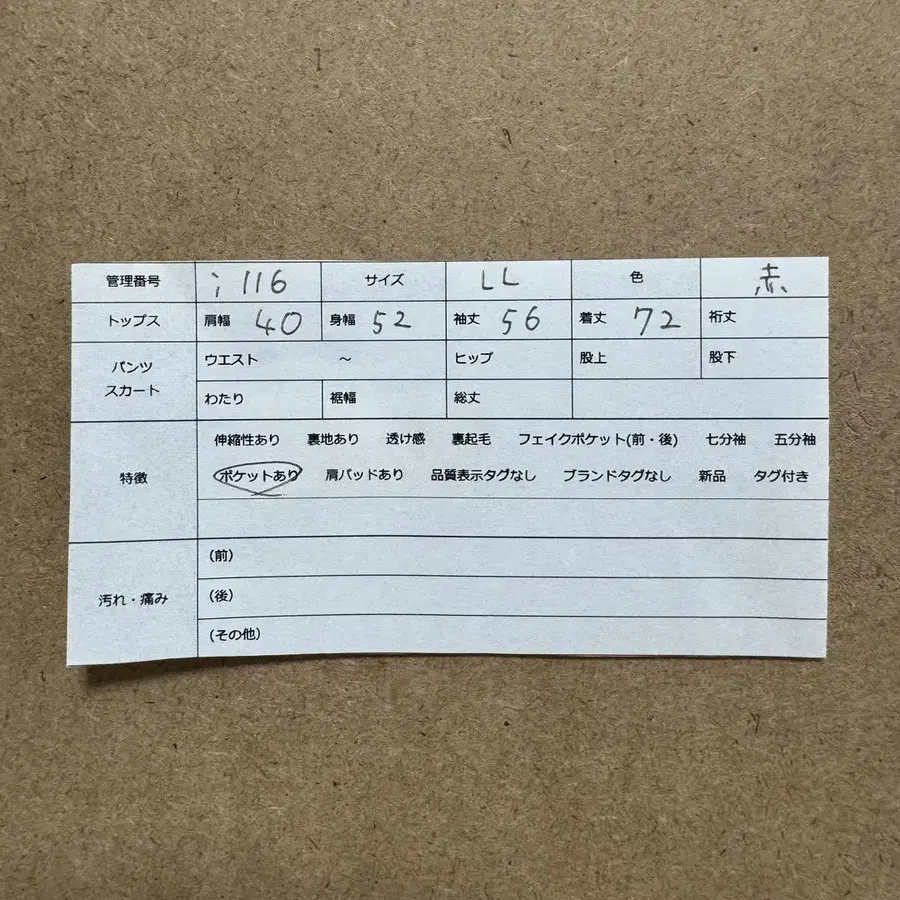 管理番号 i 116 サイズ LL 色 赤
トップス 肩幅 40 身幅 52 袖丈 56 着丈 72 裄丈
パンツ スカート
ウエスト ～ ヒップ 股上 股下
わたり 裾幅 総丈
特徴
伸縮性あり 裏地あり 透け感 裏起毛 フェイクポケット(前・後) 七分袖 五分袖
ポケットあり 肩パッドあり 品質表示タグなし ブランドタグなし 新品 タグ付き
汚れ・痛み
(前)
(後)
(その他)